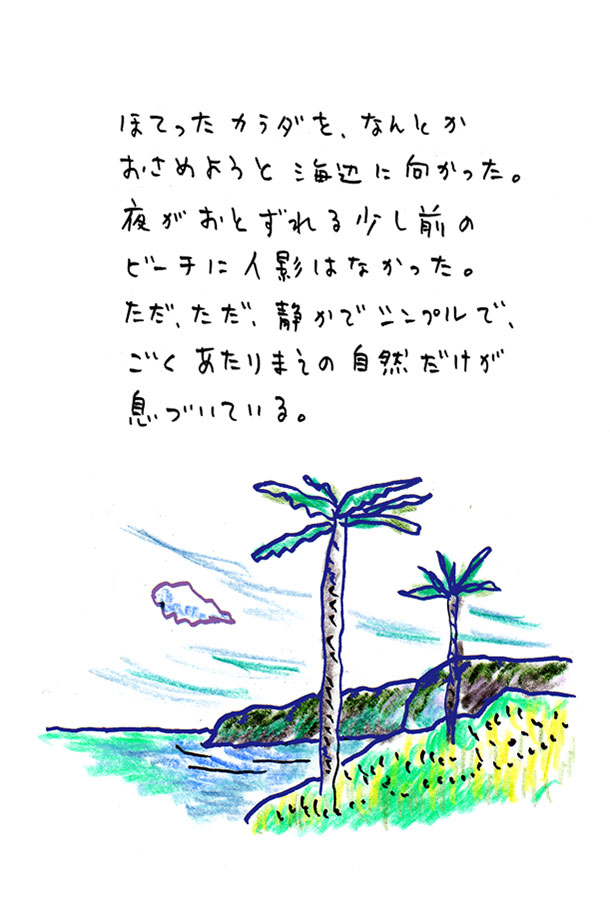 ほてったカラダを、なんとか
おさめようと海辺に向かった。
夜がおとずれる少し前の
ビーチに人影はなかった。
ただ、ただ、静かでシンプルで、
ごくあたりまえの自然だけが
息づいている。